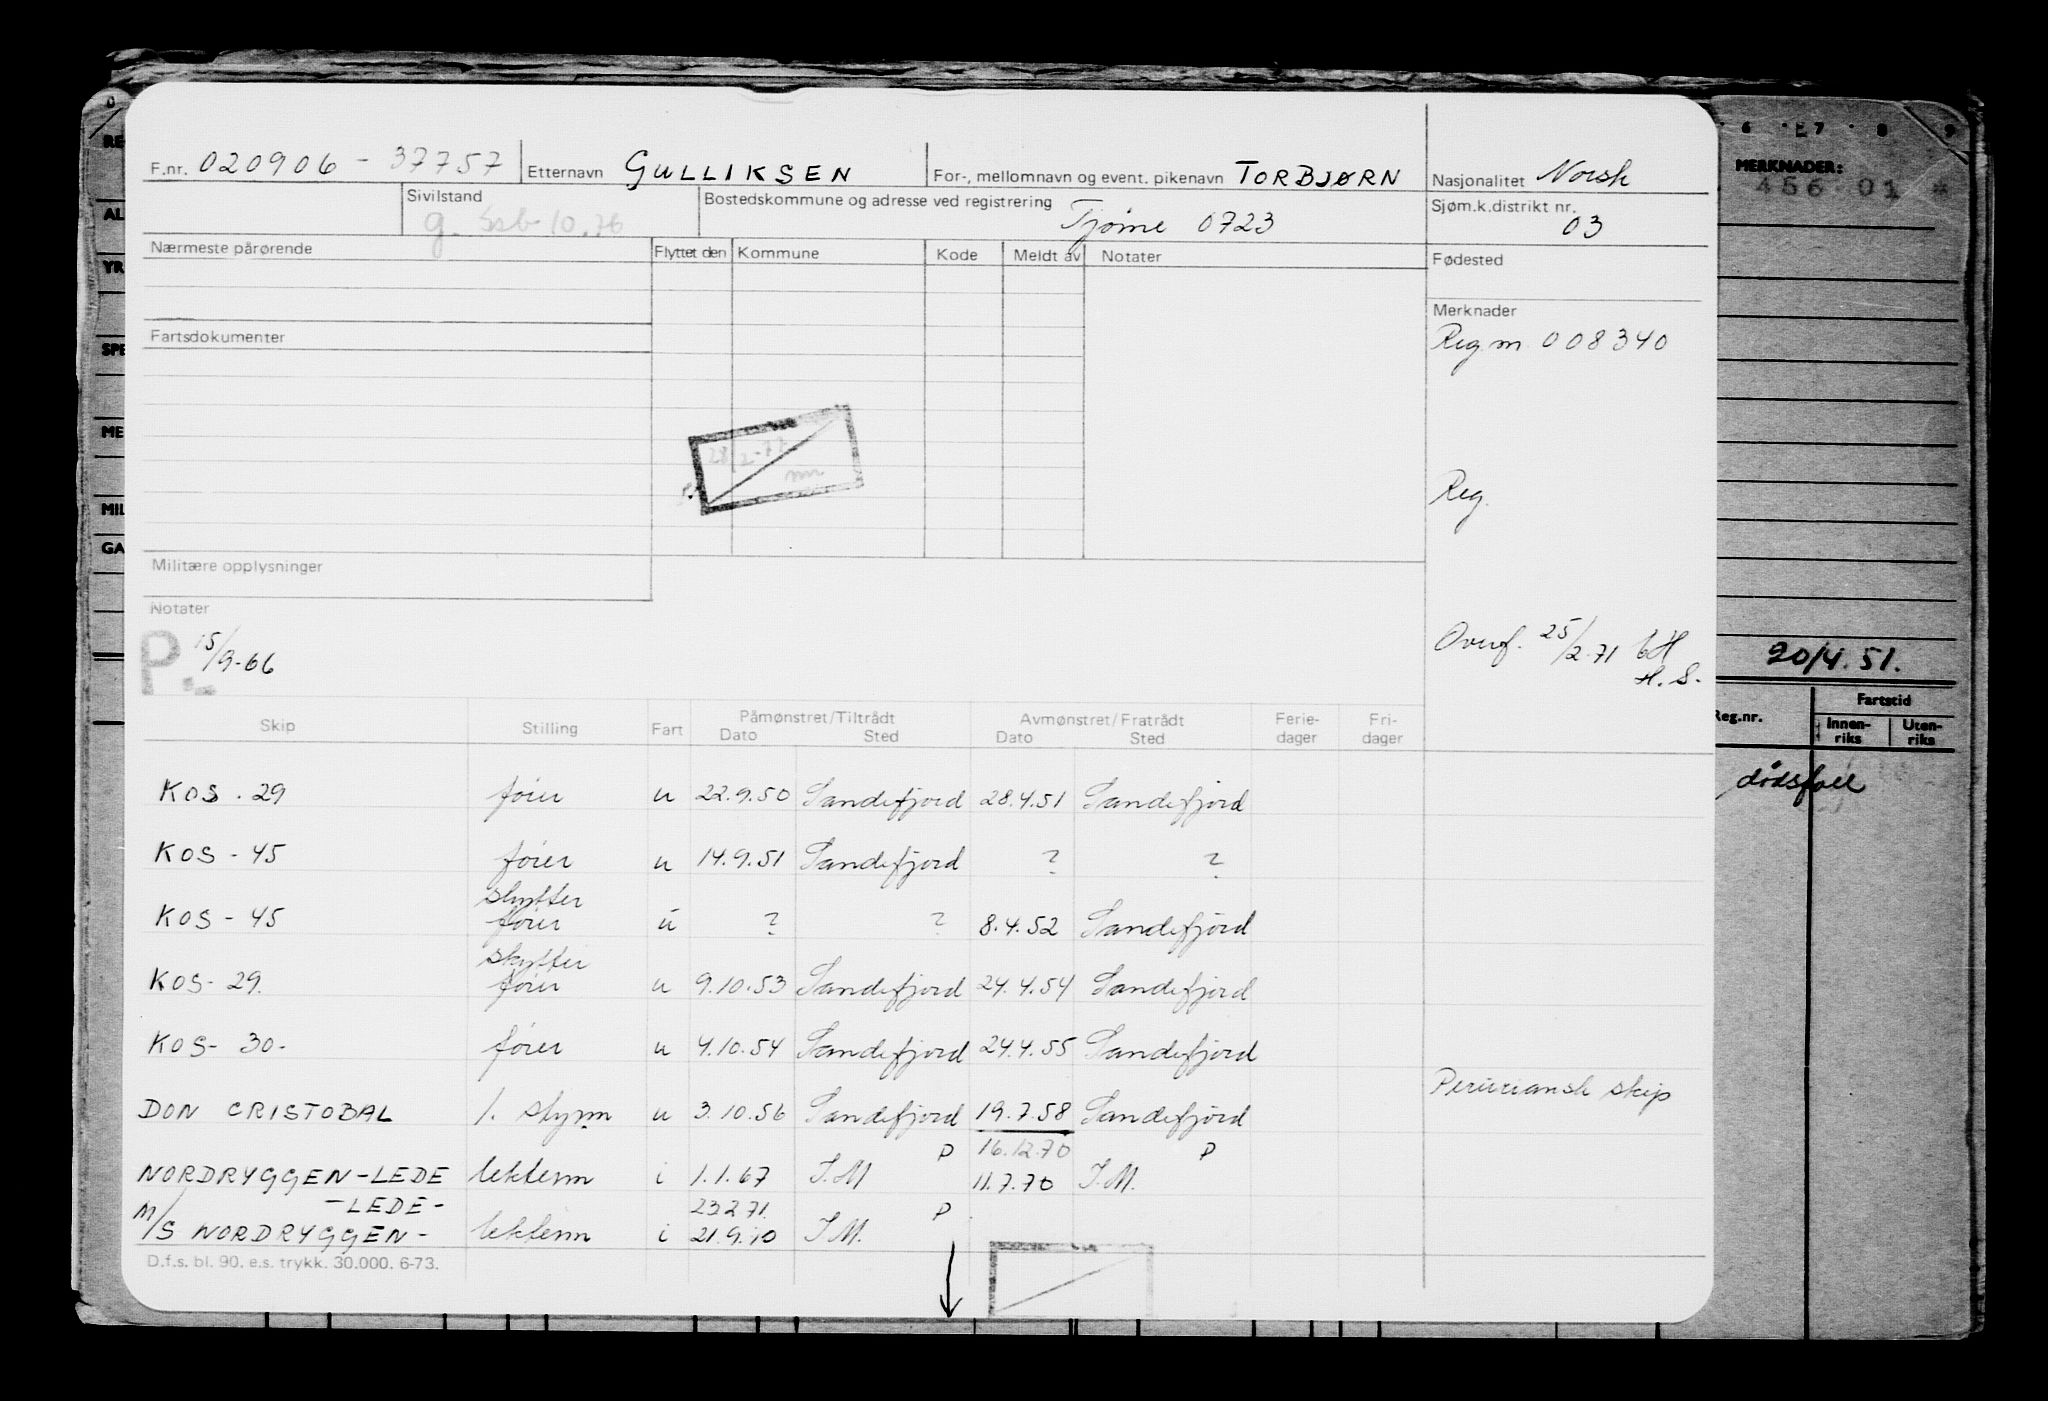 F.nr. 020906 - 37757 Etternavn GULLIKSEN For-, mellomnavn og event. pikenavn TORBJØRN Nasjonalitet Norsk
Sivilstand g. Bostedskommune og adresse ved registrering Tjøme 0723 Sjøm.k.distrikt nr. 03
Nærmeste pårørende Flyttet den Kommune Kode Meldt av Notater Fødested
Merknader
Fartsdokumenter Reg nr. 008340
28/2-77
Reg.
Militære opplysninger
Notater
P. 15/9-66 Overf. 25/2-71
H.S.
Skip Stilling Fart Påmønstret/Tiltrådt Avmønstret/Fratrådt Ferie- Fri-
Dato Sted Dato Sted dager dager
KOS - 29 fører u 22.9.50 Sandefjord 28.4.51 Sandefjord
KOS - 45 fører u 14.9.51 Sandefjord ? ?
skytter
KOS - 45 fører u ? ? 8.4.52 Sandefjord
skytter
KOS - 29. fører u 9.10.53 Sandefjord 24.4.54 Sandefjord
KOS - 30 - fører u 4.10.54 Sandefjord 24.4.55 Sandefjord
Peruviansk skip
DON CRISTOBAL 1. styrm u 3.10.56 Sandefjord 19.7.58 Sandefjord
P 16.12.70 P
NORDRYGGEN - LEDE lekterm i 1.1.67 I.M 11.7.70 I.M.
- LEDE - 23.2.71. P
M/S NORDRYGGEN - lekterm i 21.9.70 I.M.
D.f.s. bl. 90. e.s. trykk. 30.000. 6-73.
RE
AL
YR
SPE
ME
MIL
GA
6 7 8 9
MERKNADER:
456 01 *
20/4.51.
Reg.nr. Fartstid
Innen-riks Uten-riks
dødsfall